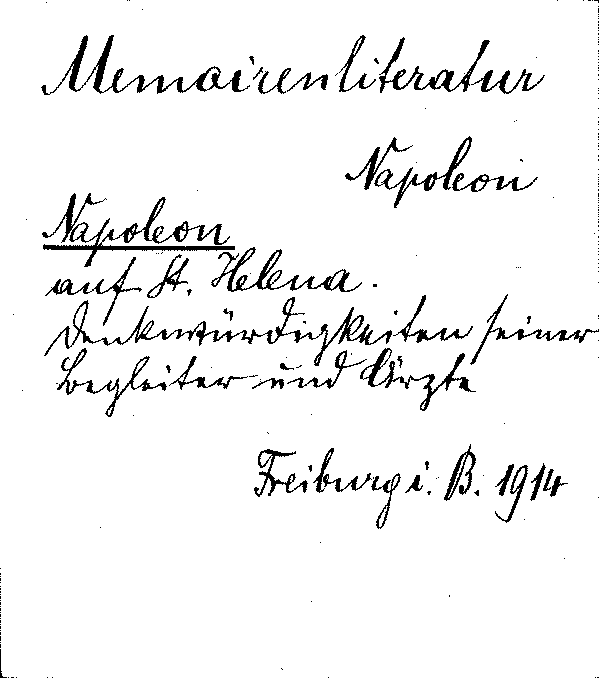 Memoirenliteratur
Napoleon
Napoleon
auf St. Helena.
Denkwürdigkeiten seiner
Begleiter und Ärzte
Freiburg i. B. 1914